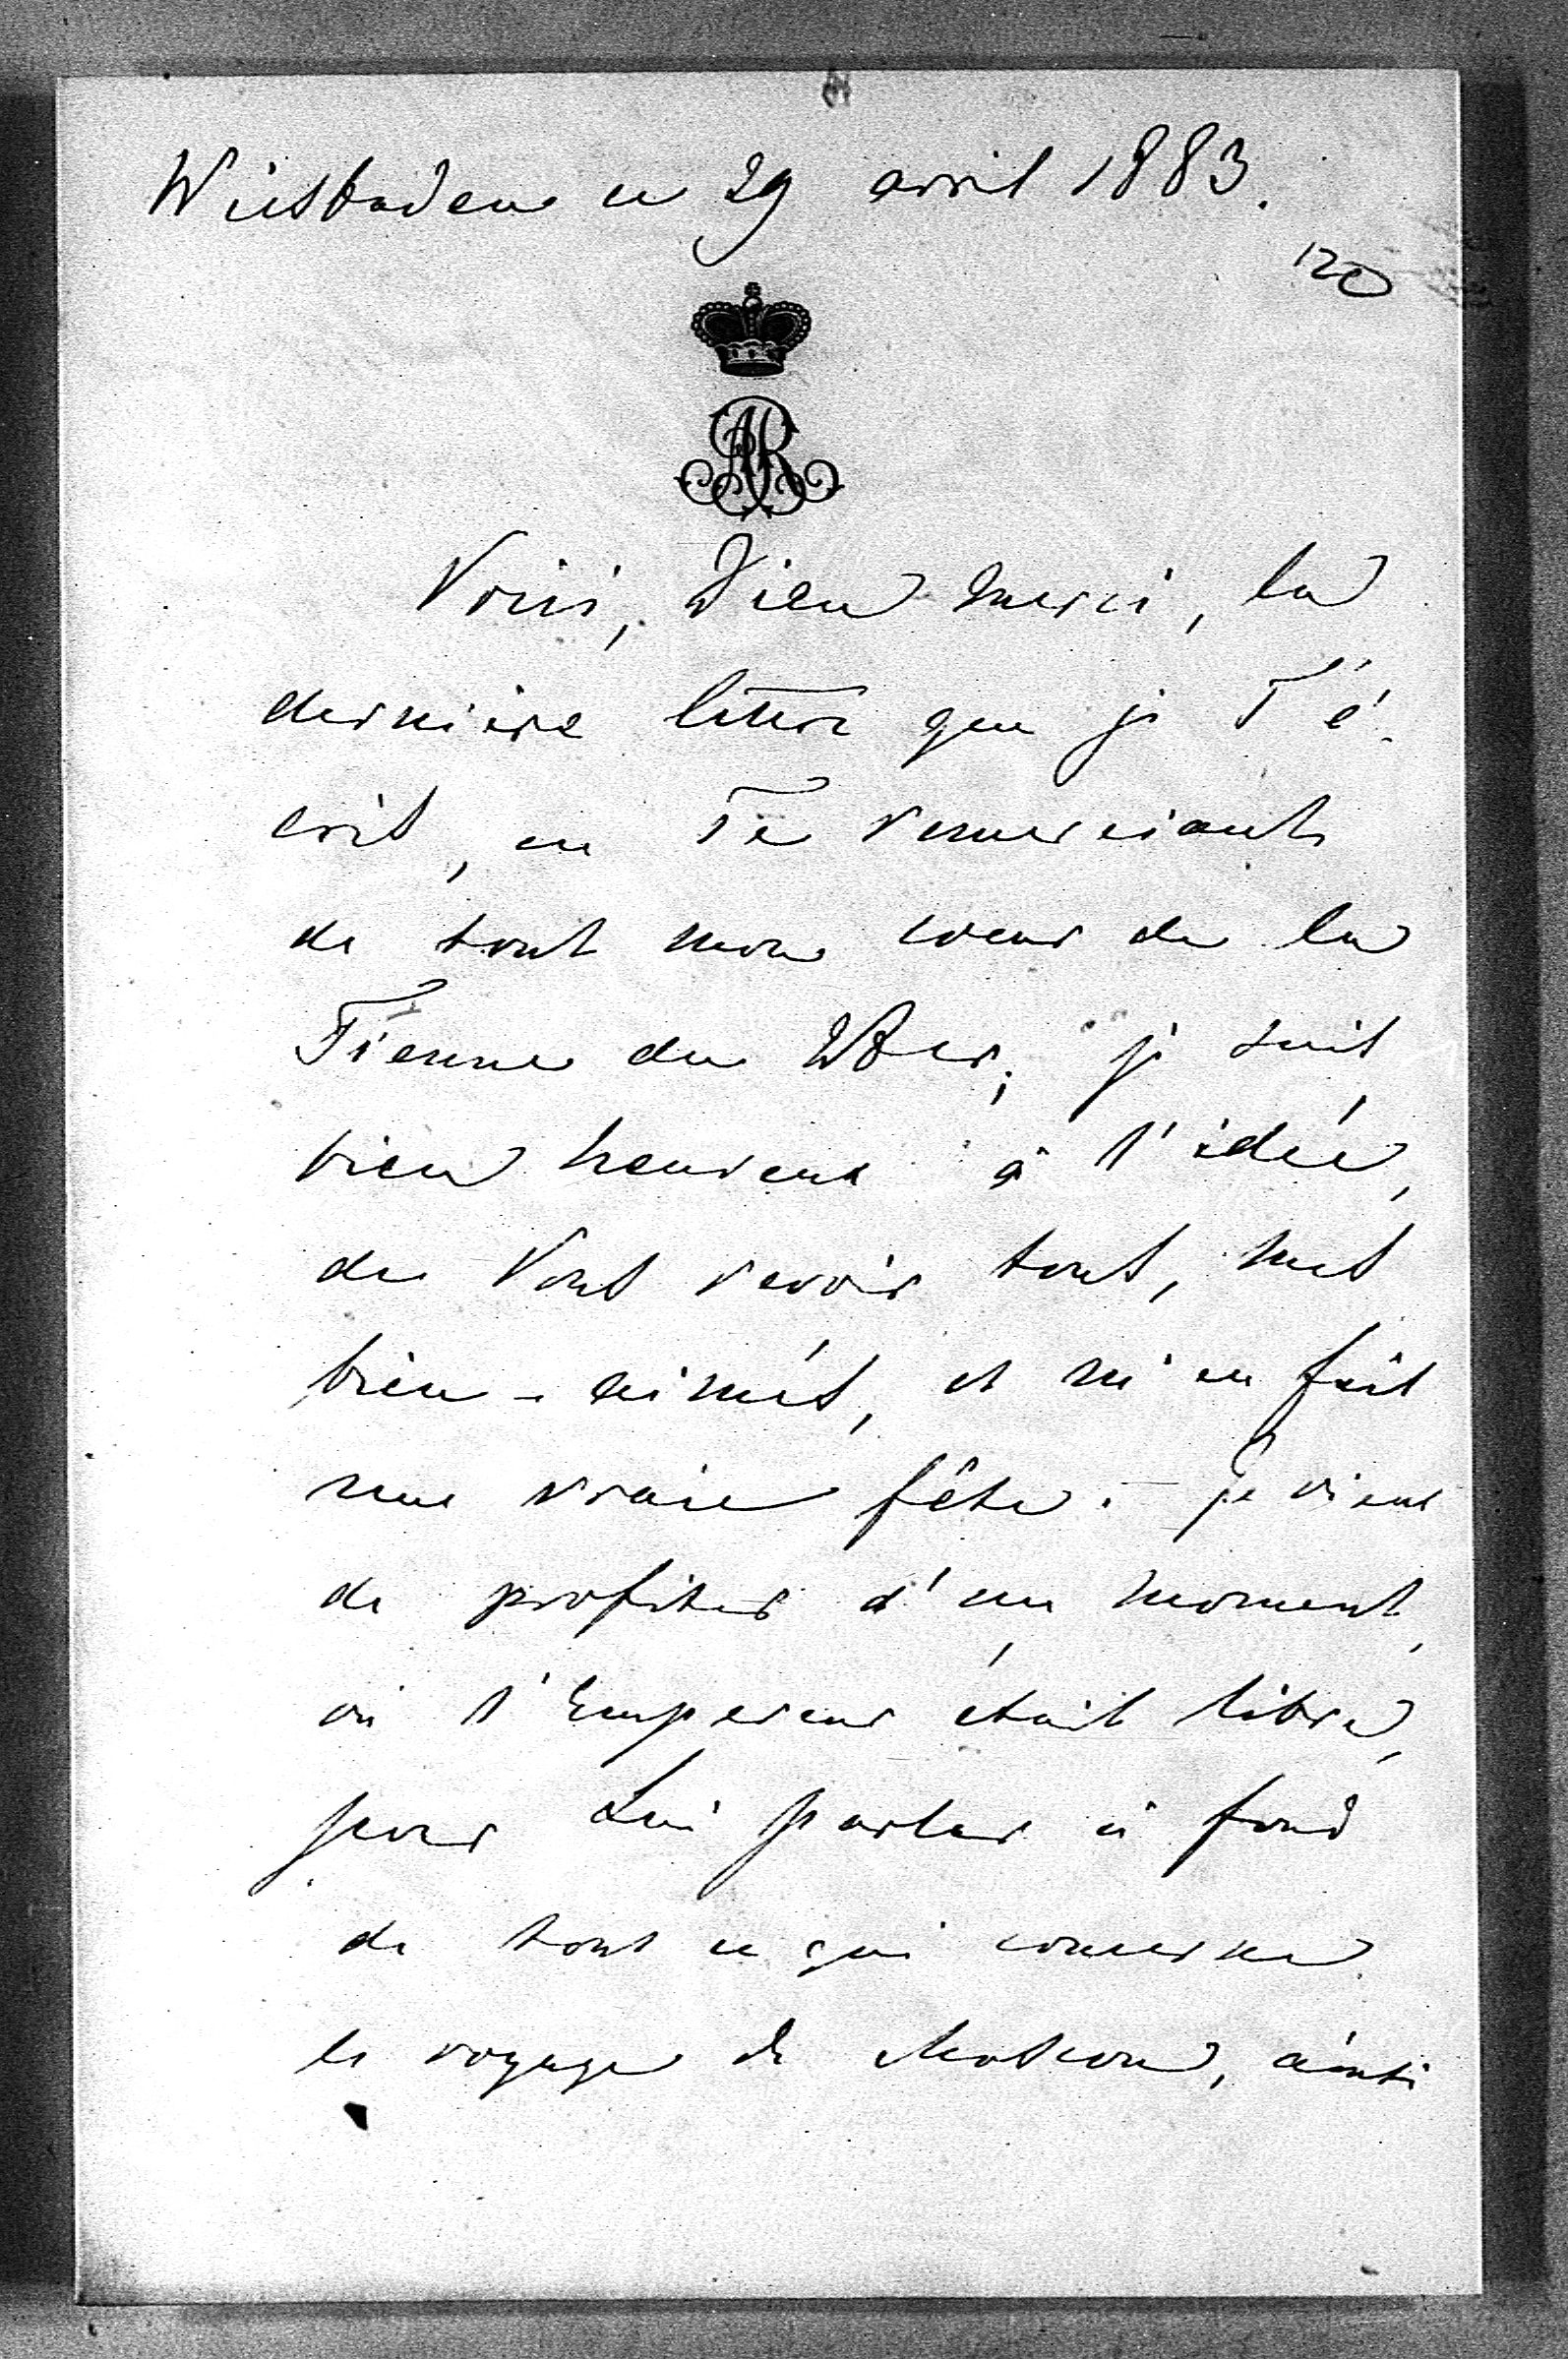 Wiesbaden ce 29 avril 1883.
120
AR
Voici, Dieu merci, la
dernière lettre que je T'é-
cris, en Te remerciant
de tout mon coeur de la
Tienne du ; je suis
bien heureux à l'idée,
de Vous revoir tous, mes
bien-aimés, et m'en fais
une vraie fête. – Je viens
de profiter d'un moment,
où l'Empereur était libre,
pour Lui parler à fond
de tout ce qui concerne
le voyage de Moscou, ainsi